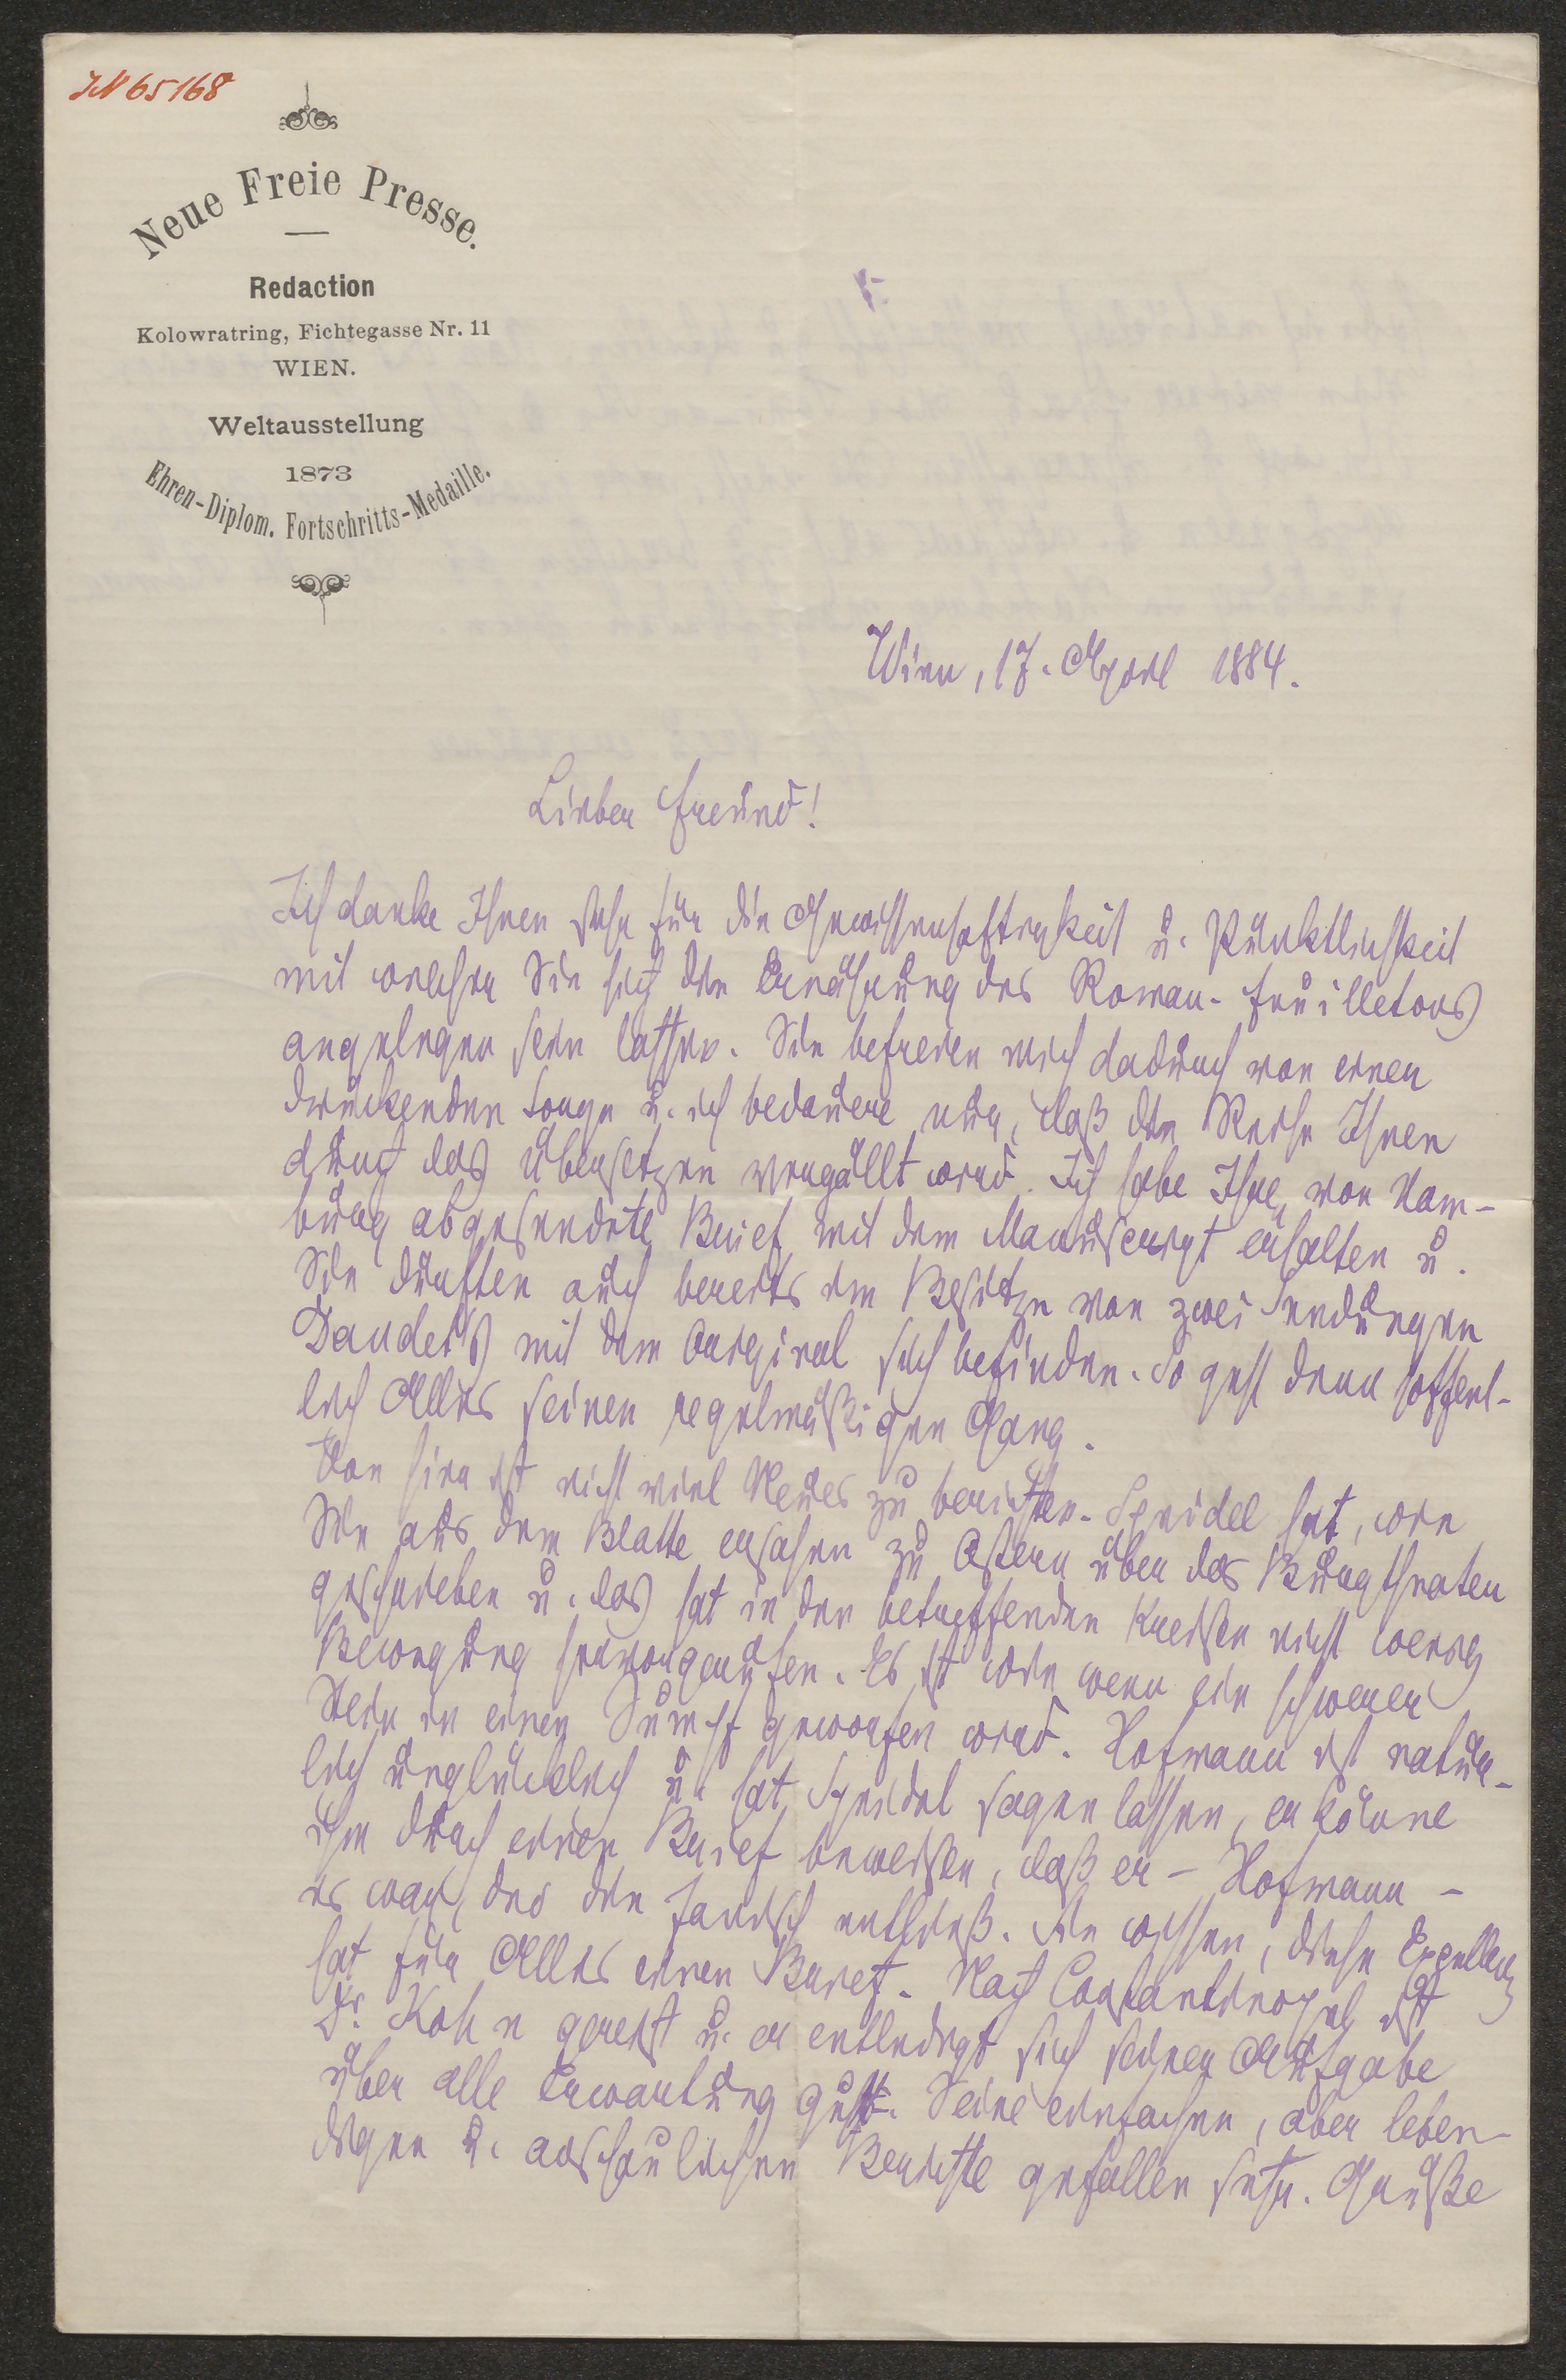 IN 65168
Neue Freie Presse.
Redaction
Kolowratring, Fichtegasse Nr. 11
WIEN.
Weltausstellung
1873
Ehren-Diplom. Fortschritts-Medaille.
Wien, 17. April 1884.
Lieber Freund!
Ich danke Ihnen sehr für die Gewissenhaftigkeit u. Pünktlichkeit
mit welcher Sie sich die Ernährung des Roman-Feuilletons
angelegen sein lassen. Sie befreien mich dadurch von einer
drückenden Sorge u. ich bedauere nur, daß die Reise Ihnen
durch das Übersetzen vergällt wird. Ich habe Ihre von Ham-
burg abgesendete Brief mit dem Manuscript erhalten u.
Sie dürften auch bereits im Besitze von zwei Sendungen
Daudet's mit dem Original sich befinden. So geht denn hoffent-
lich Alles seinen regelmäßigen Gang.
Von hier ist nicht viel Neues zu berichten. Speidel hat, wie
Sie aus dem Blatte ersahen zu Ostern über das Burgtheater
geschrieben u. das hat in den betreffenden Kreisen nicht wenig
Bewegung hervorgerufen. Es ist wie wenn ein schwerer
Stein in einen Sumpf geworfen wird. Hofmann ist natür-
lich unglücklich u. hat Speidel sagen lassen, er könne
ihm durch einen Brief beweisen, daß er - Hofmann -
es war, der die Janisch entließ. Sie wissen, diese Excellenz
hat für Alles einen Brief. Nach Constantinopel ist
Dr. Kohn gereist u. er entledigt sich seiner Aufgabe
über alle Erwartung gut. Seine einfachen, aber leben-
digen u. anschaulichen Berichte gefallen sehr. Grüße